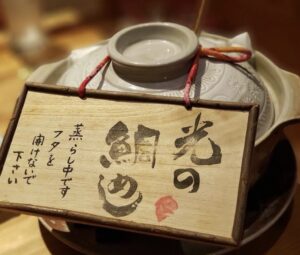 光の
鯛めし
蒸らし中です
フタを
開けないで
下さい